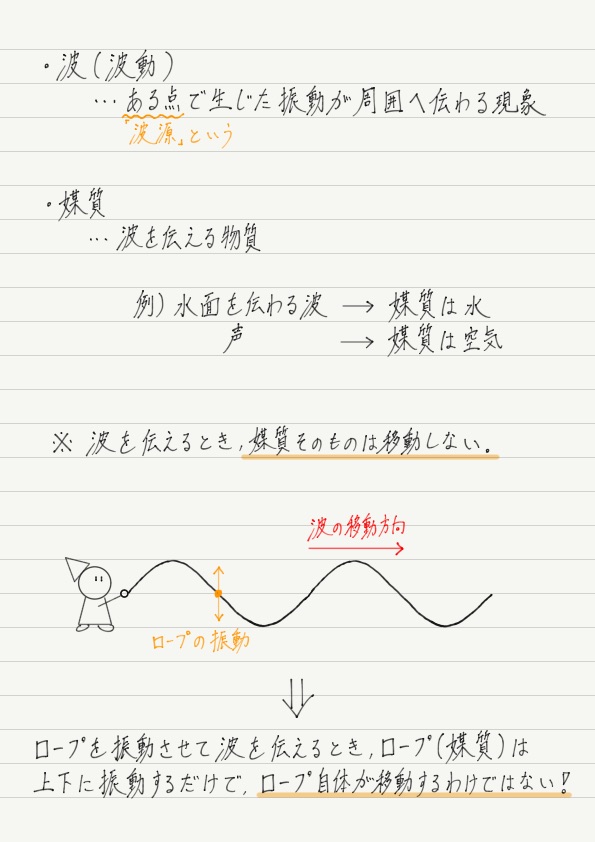 ・波(波動)
… ある点で生じた振動が周囲へ伝わる現象
「波源」という
・媒質
… 波を伝える物質
例) 水面を伝わる波 → 媒質は水
声 → 媒質は空気
※ 波を伝えるとき,媒質そのものは移動しない。
波の移動方向
ロープの振動
ロープを振動させて波を伝えるとき,ロープ(媒質)は
上下に振動するだけで,ロープ自体が移動するわけではない!